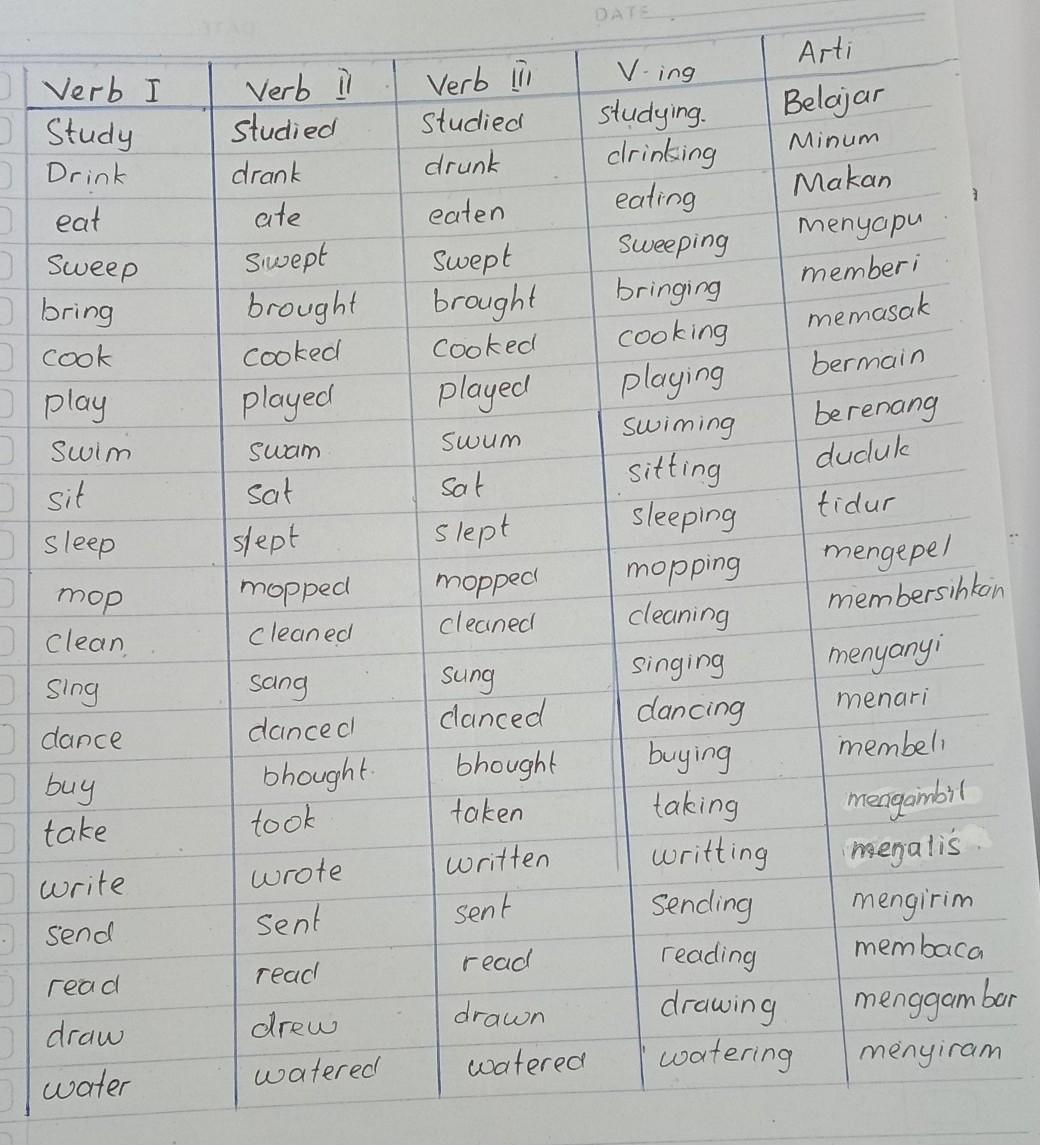 DATE
Verb I Verb II Verb III V-ing Arti
Study Studied Studied studying. Belajar
Drink drank drunk drinking Minum
eat ate eaten eating Makan
Sweep swept swept sweeping menyapu
bring brought brought bringing memberi
cook cooked cooked cooking memasak
play played played playing bermain
swim swam swum swiming berenang
sit sat sat sitting duduk
sleep slept slept sleeping tidur
mop mopped mopped mopping mengepel
clean cleaned cleaned cleaning membersihkan
sing sang sung singing menyanyi
dance danced danced dancing menari
buy bhought bhought buying membeli
take took taken taking mengambil
write wrote written writting menalis
send sent sent sending mengirim
read read read reading membaca
draw drew drawn drawing menggambar
water watered watered watering menyiram